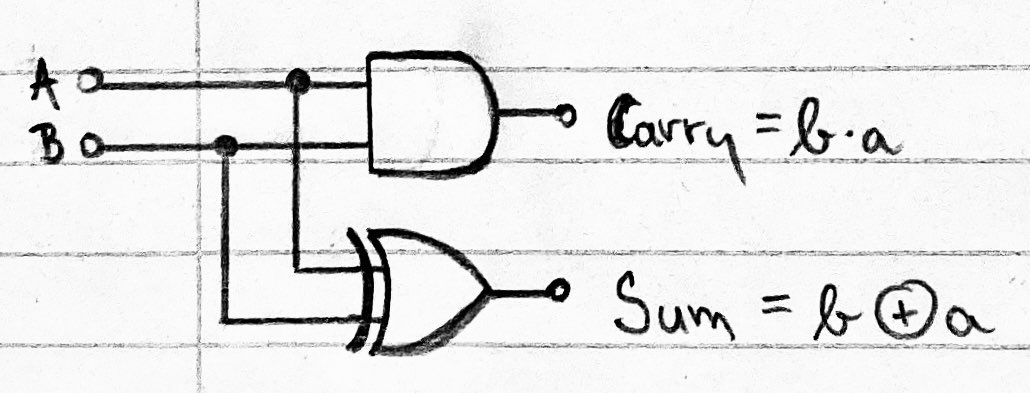 A
B
Carry = b·a
Sum = b⊕a